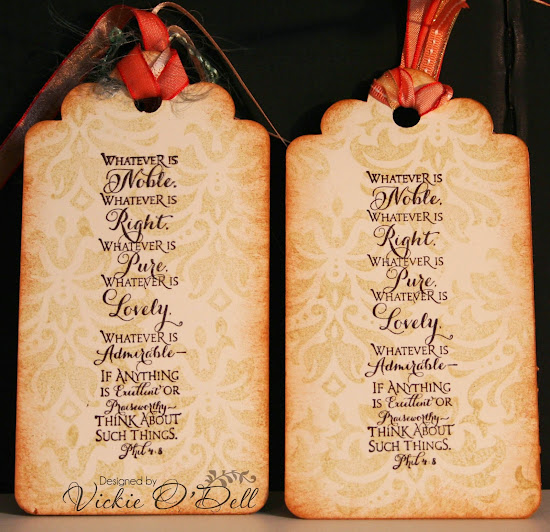 WHATEVER IS
Noble.
WHATEVER IS
Right.
WHATEVER IS
Pure.
WHATEVER IS
Lovely.
WHATEVER IS
Admirable—
IF ANYTHING
IS Excellent OR
Praiseworthy—
THINK ABOUT
SUCH THINGS.
Phil 4:8
Designed by
Vickie O'Dell
WHATEVER IS
Noble.
WHATEVER IS
Right.
WHATEVER IS
Pure.
WHATEVER IS
Lovely.
WHATEVER IS
Admirable—
IF ANYTHING
IS Excellent OR
Praiseworthy—
THINK ABOUT
SUCH THINGS.
Phil 4:8